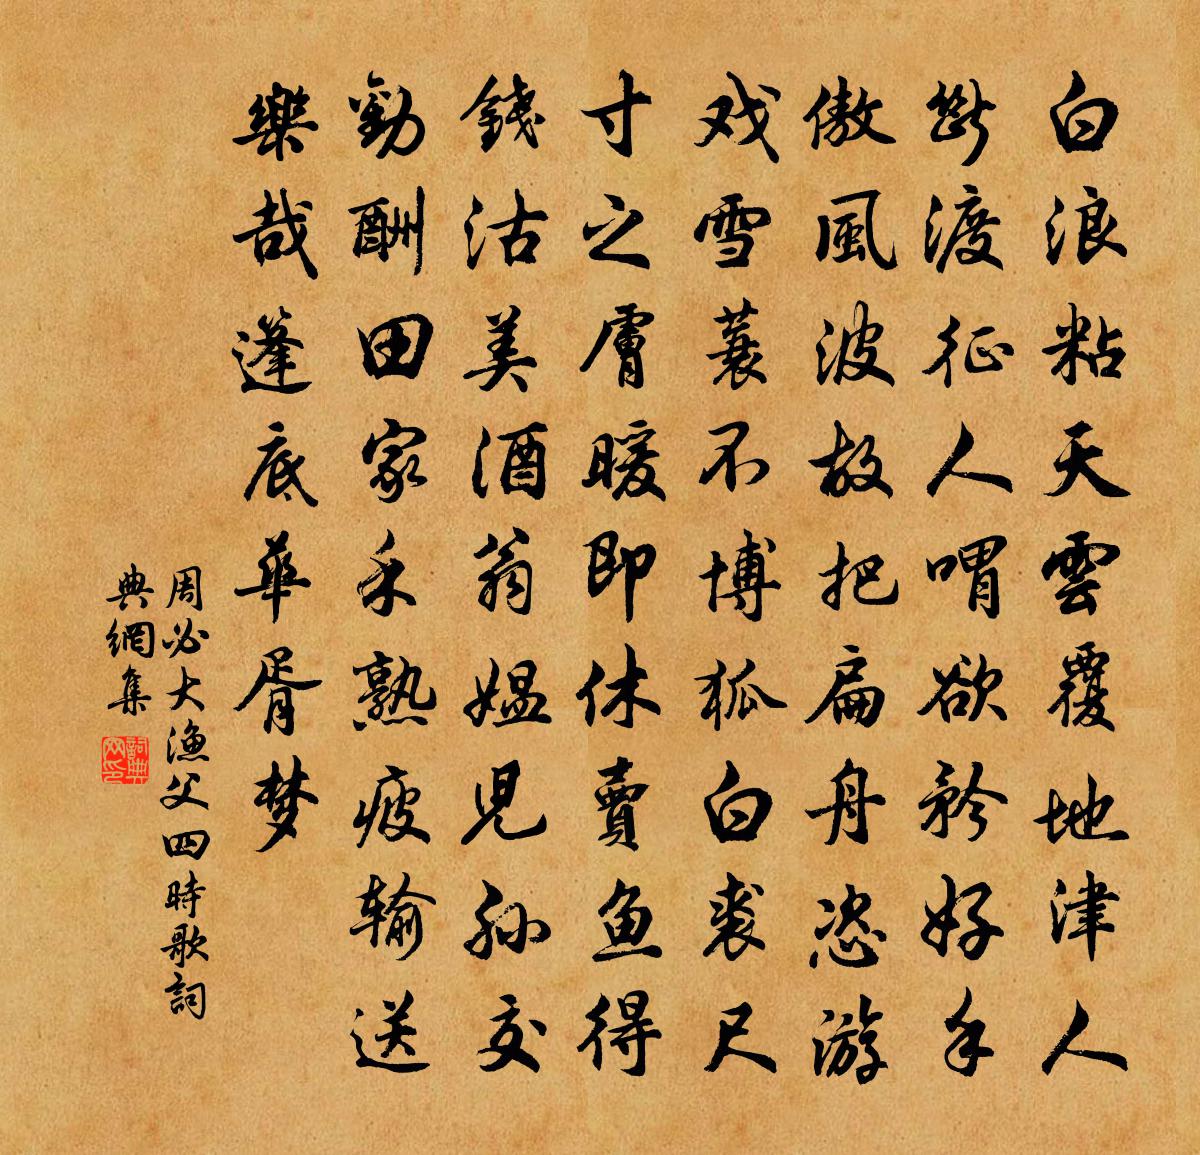 白浪粘天雲覆地津人
斷渡征人喟欲矜好手
傲風波故把扁舟恣游
戏雪蓑不博狐白裘尺
寸之膚暖即休賣魚得
錢沽美酒翁媼兒孫交
勸酬田家禾熟疲输送
樂哉篷底華胥梦
周必大漁父四時歌詞
典網集
詞典网印